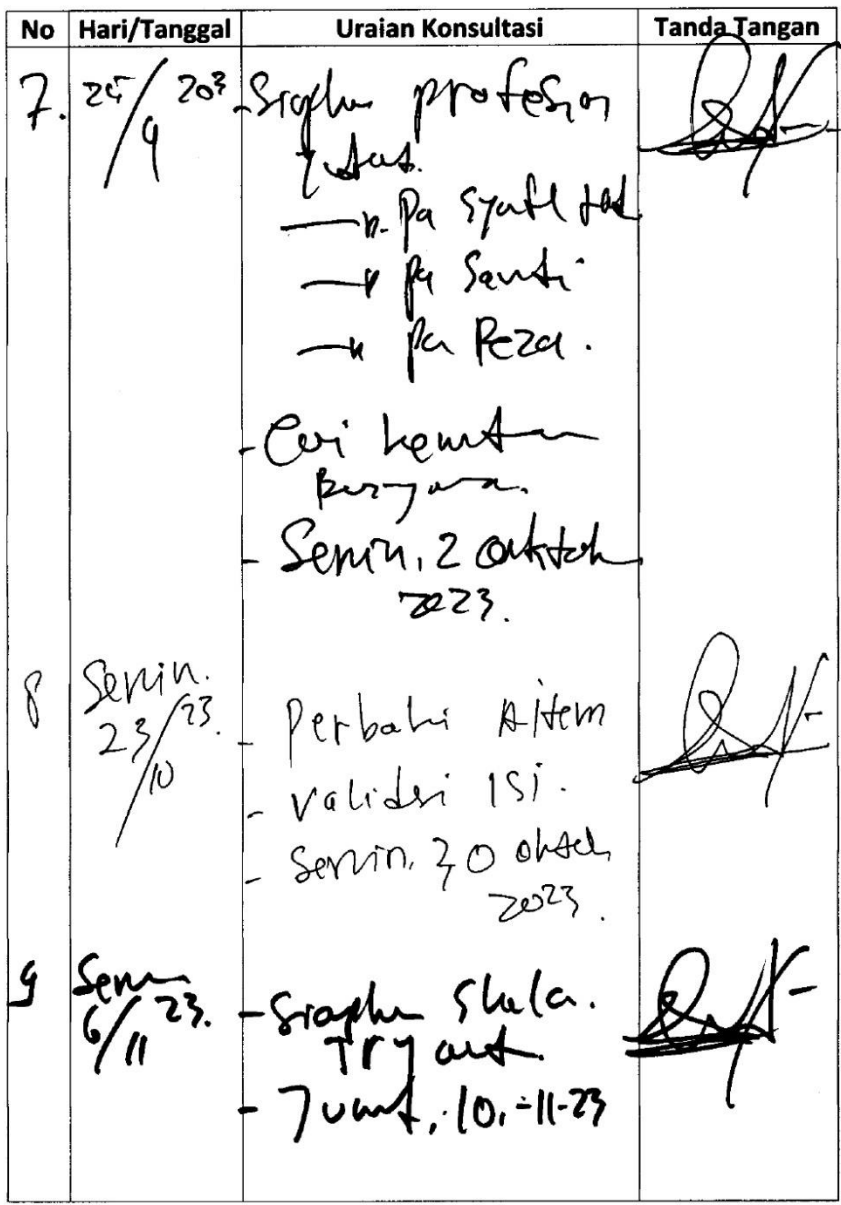 No Hari/Tanggal Uraian Konsultasi Tanda Tangan
7. 25/9 2023 - Siapkan profesion
→ pa
→ pa Santi
→ pa Reza.
- Cari
- Senin, 2 Oktob
2023.
8 Senin. 23/10 23. - Perbaki Aitem
- Validasi ISI.
- Senin, 30 Oktob
2023.
9 Senin 6/11 23. - Siapkan Skala.
Try out.
- Jumat, 10,-11-23